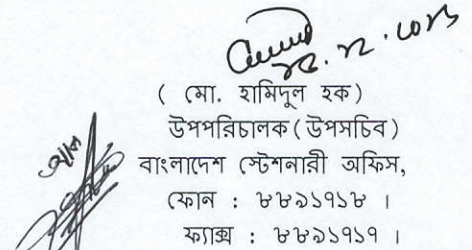 ( মো. হামিদুল হক)
উপপরিচালক (উপসচিব)
বাংলাদেশ স্টেশনারী অফিস,
ফোন : ৮৮৯১৭১৮ ।
ফ্যাক্স : ৮৮৯১৭১৭ ।